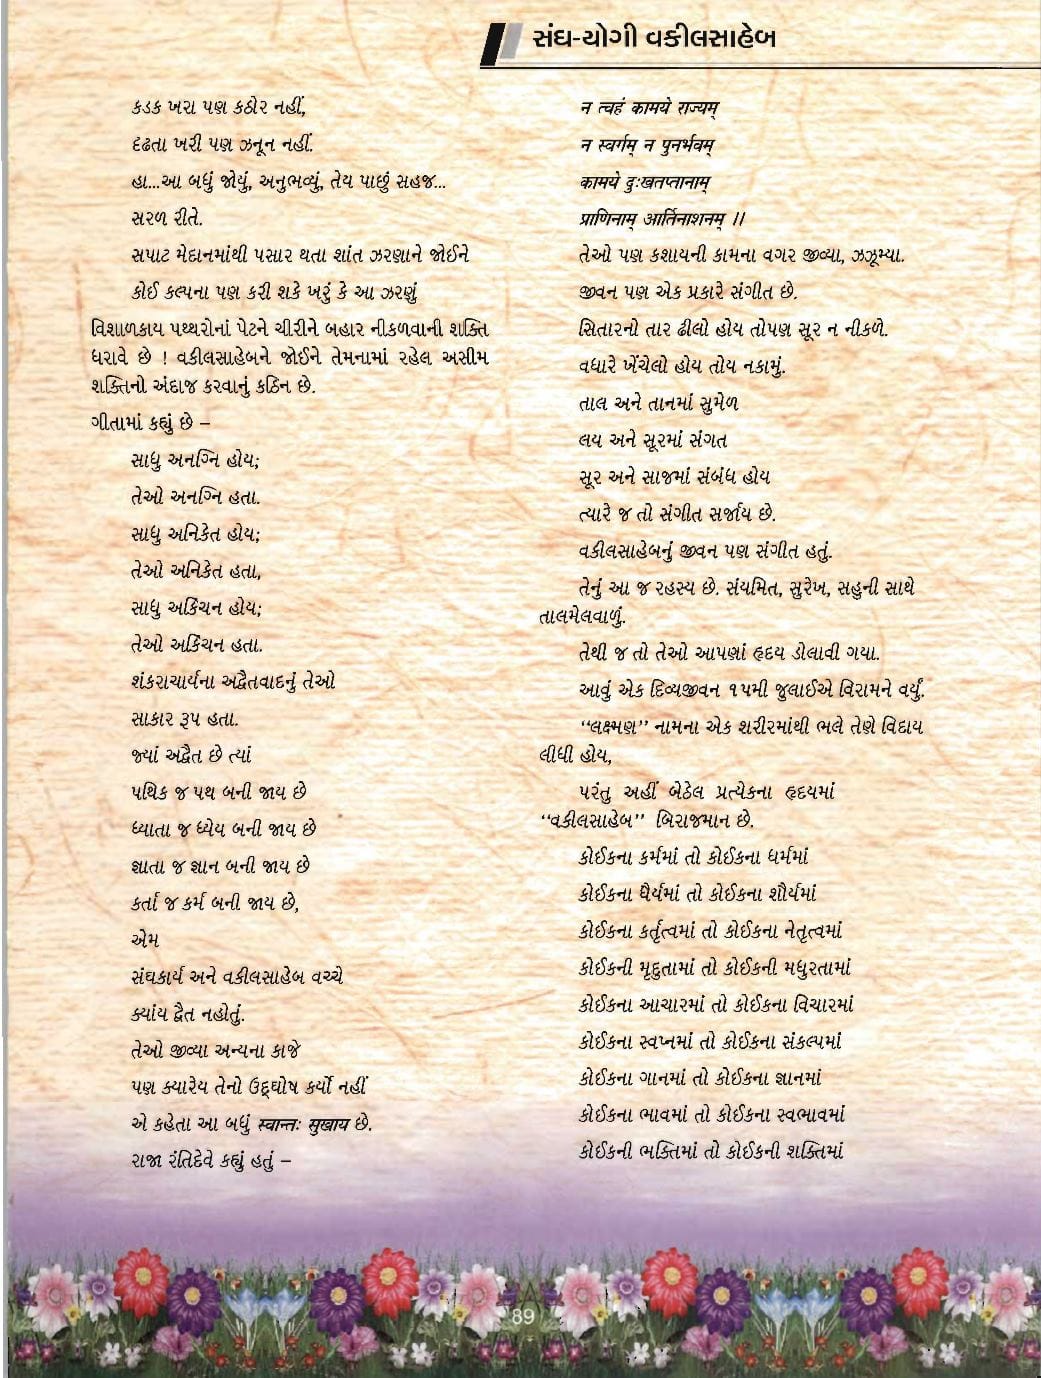 સંઘ-યોગી વકીલસાહેબ
કડક ખરા પણ કઠોર નહીં,
દઢતા ખરી પણ ઝનૂન નહીં.
હા...આ બધું જોયું, અનુભવ્યું, તેય પાછું સહજ...
સરળ રીતે.
સપાટ મેદાનમાંથી પસાર થતા શાંત ઝરણાને જોઈને
કોઈ કલ્પના પણ કરી શકે ખરું કે આ ઝરણું
વિશાળકાય પથ્થરોનાં પેટને ચીરીને બહાર નીકળવાની શક્તિ
ધરાવે છે ! વકીલસાહેબને જોઈને તેમનામાં રહેલ અસીમ
શક્તિનો અંદાજ કરવાનું કઠિન છે.
ગીતામાં કહ્યું છે –
સાધુ અનગ્નિ હોય;
તેઓ અનગ્નિ હતા.
સાધુ અનિકેત હોય;
તેઓ અનિકેત હતા,
સાધુ અકિંચન હોય;
તેઓ અકિંચન હતા.
શંકરાચાર્યના અદ્વૈતવાદનું તેઓ
સાકાર રૂપ હતા.
જ્યાં અદ્વૈત છે ત્યાં
પથિક જ પથ બની જાય છે
ધ્યાતા જ ધ્યેય બની જાય છે
જ્ઞાતા જ જ્ઞાન બની જાય છે
કર્તા જ કર્મ બની જાય છે,
એમ
સંઘકાર્ય અને વકીલસાહેબ વચ્ચે
ક્યાંય દ્વૈત નહોતું.
તેઓ જીવ્યા અન્યના કાજે
પણ ક્યારેય તેનો ઉદ્‌ઘોષ કર્યો નહીં
એ કહેતા આ બધું स्वान्तः सुखाय છે.
રાજા રંતિદેવે કહ્યું હતું –
न त्वहं कामये राज्यम्
न स्वर्गम् न पुनर्भवम्
कामये दुःखतप्तानाम्
प्राणिनाम् आर्तिनाशनम् ।।
તેઓ પણ કશાયની કામના વગર જીવ્યા, ઝઝૂમ્યા.
જીવન પણ એક પ્રકારે સંગીત છે.
સિતારનો તાર ઢીલો હોય તોપણ સૂર ન નીકળે.
વધારે ખેંચેલો હોય તોય નકામું.
તાલ અને તાનમાં સુમેળ
લય અને સૂરમાં સંગત
સૂર અને સાજમાં સંબંધ હોય
ત્યારે જ તો સંગીત સર્જાય છે.
વકીલસાહેબનું જીવન પણ સંગીત હતું.
તેનું આ જ રહસ્ય છે. સંયમિત, સુરેખ, સહુની સાથે
તાલમેલવાળું.
તેથી જ તો તેઓ આપણાં હૃદય ડોલાવી ગયા.
આવું એક દિવ્યજીવન ૧૫મી જુલાઈએ વિરામને વર્યું.
“લક્ષ્મણ” નામના એક શરીરમાંથી ભલે તેણે વિદાય
લીધી હોય,
પરંતુ અહીં બેઠેલ પ્રત્યેકના હૃદયમાં
“વકીલસાહેબ” બિરાજમાન છે.
કોઈકના કર્મમાં તો કોઈકના ધર્મમાં
કોઈકના ધૈર્યમાં તો કોઈકના શૌર્યમાં
કોઈકના કર્તૃત્વમાં તો કોઈકના નેતૃત્વમાં
કોઈકની મૃદુતામાં તો કોઈકની મધુરતામાં
કોઈકના આચારમાં તો કોઈકના વિચારમાં
કોઈકના સ્વપ્નમાં તો કોઈકના સંકલ્પમાં
કોઈકના ગાનમાં તો કોઈકના જ્ઞાનમાં
કોઈકના ભાવમાં તો કોઈકના સ્વભાવમાં
કોઈકની ભક્તિમાં તો કોઈકની શક્તિમાં
89